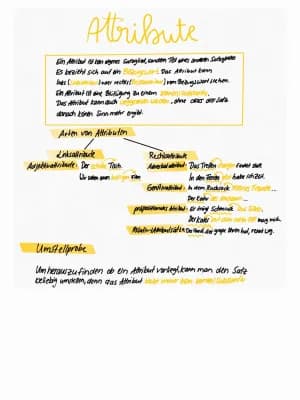 Attribute
Ein Attribut ist kein eigenes Satzglied, sondern Teil eines anderen Satzgliedes
Es bezieht sich auf ein Bezugswort. Das Attribut kann
links (Linksattribut) oder rechts (Rechtsattribut) vom Bezugswort stehen.
Ein Attribut ist eine Beifügung zu einem
Das Attribut kann auch weggelassen werden, ohne dass der Satz
danach keinen Sinn mehr ergibt.
Arten von Attributen
Linksattribute Rechtsattribute
Adjektivattribute: Der Tisch. Adverbialattribut: Das Treffen morgen findet statt
Wir sehen einen Film In den Ferien
Genitivattribut: In dem Rucksack
Der Kater des
präpositionales Attribut: Er trägt Schmuck aus Silber.
Der Kater auf dem mag mich.
Relativ-Attributsätze: Der Hund, der gegen Ihnen hat, rennt weg.
Umstellprobe
Um herauszufinden ob ein Attribut vorliegt, kann man den Satz
beliebig umstellen, denn das Attribut bleibt immer beim